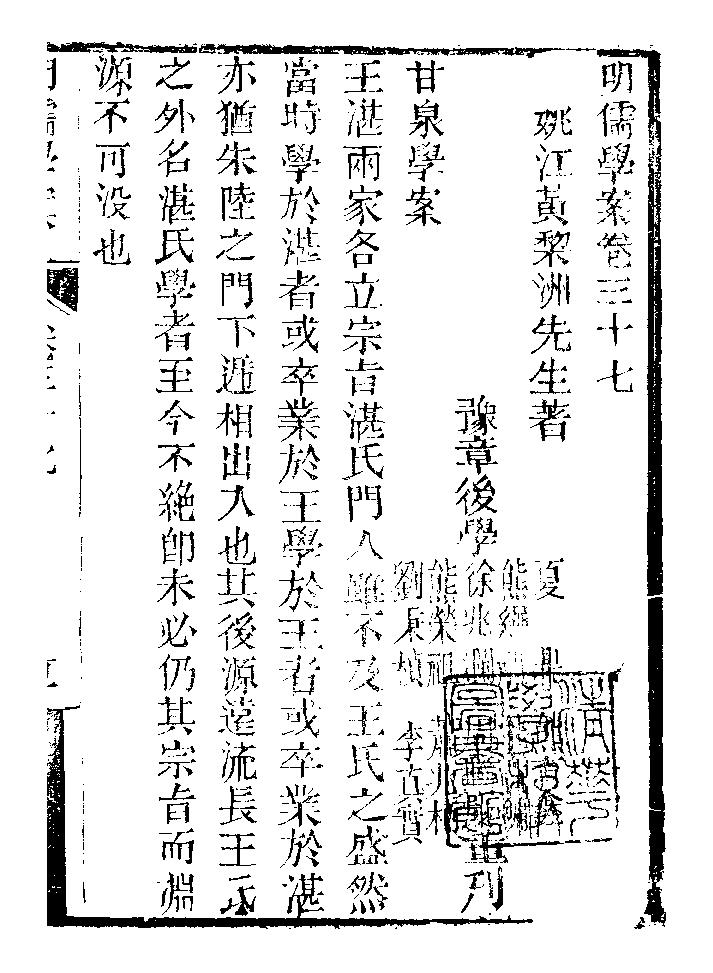 明儒學案卷三十七
姚江黃黎洲先生著
夏
熊繩
豫章後學徐兆
重刊
熊榮祖
劉秉楨 李真實
甘泉學案
王湛兩家各立宗旨湛氏門人雖不及王氏之盛然
當時學於湛者或卒業於王學於王者或卒業於湛
亦猶朱陸之門下遞相出入也其後源遠流長王氏
之外名湛氏學者至今不絕卽未必仍其宗旨而淵
源不可没也